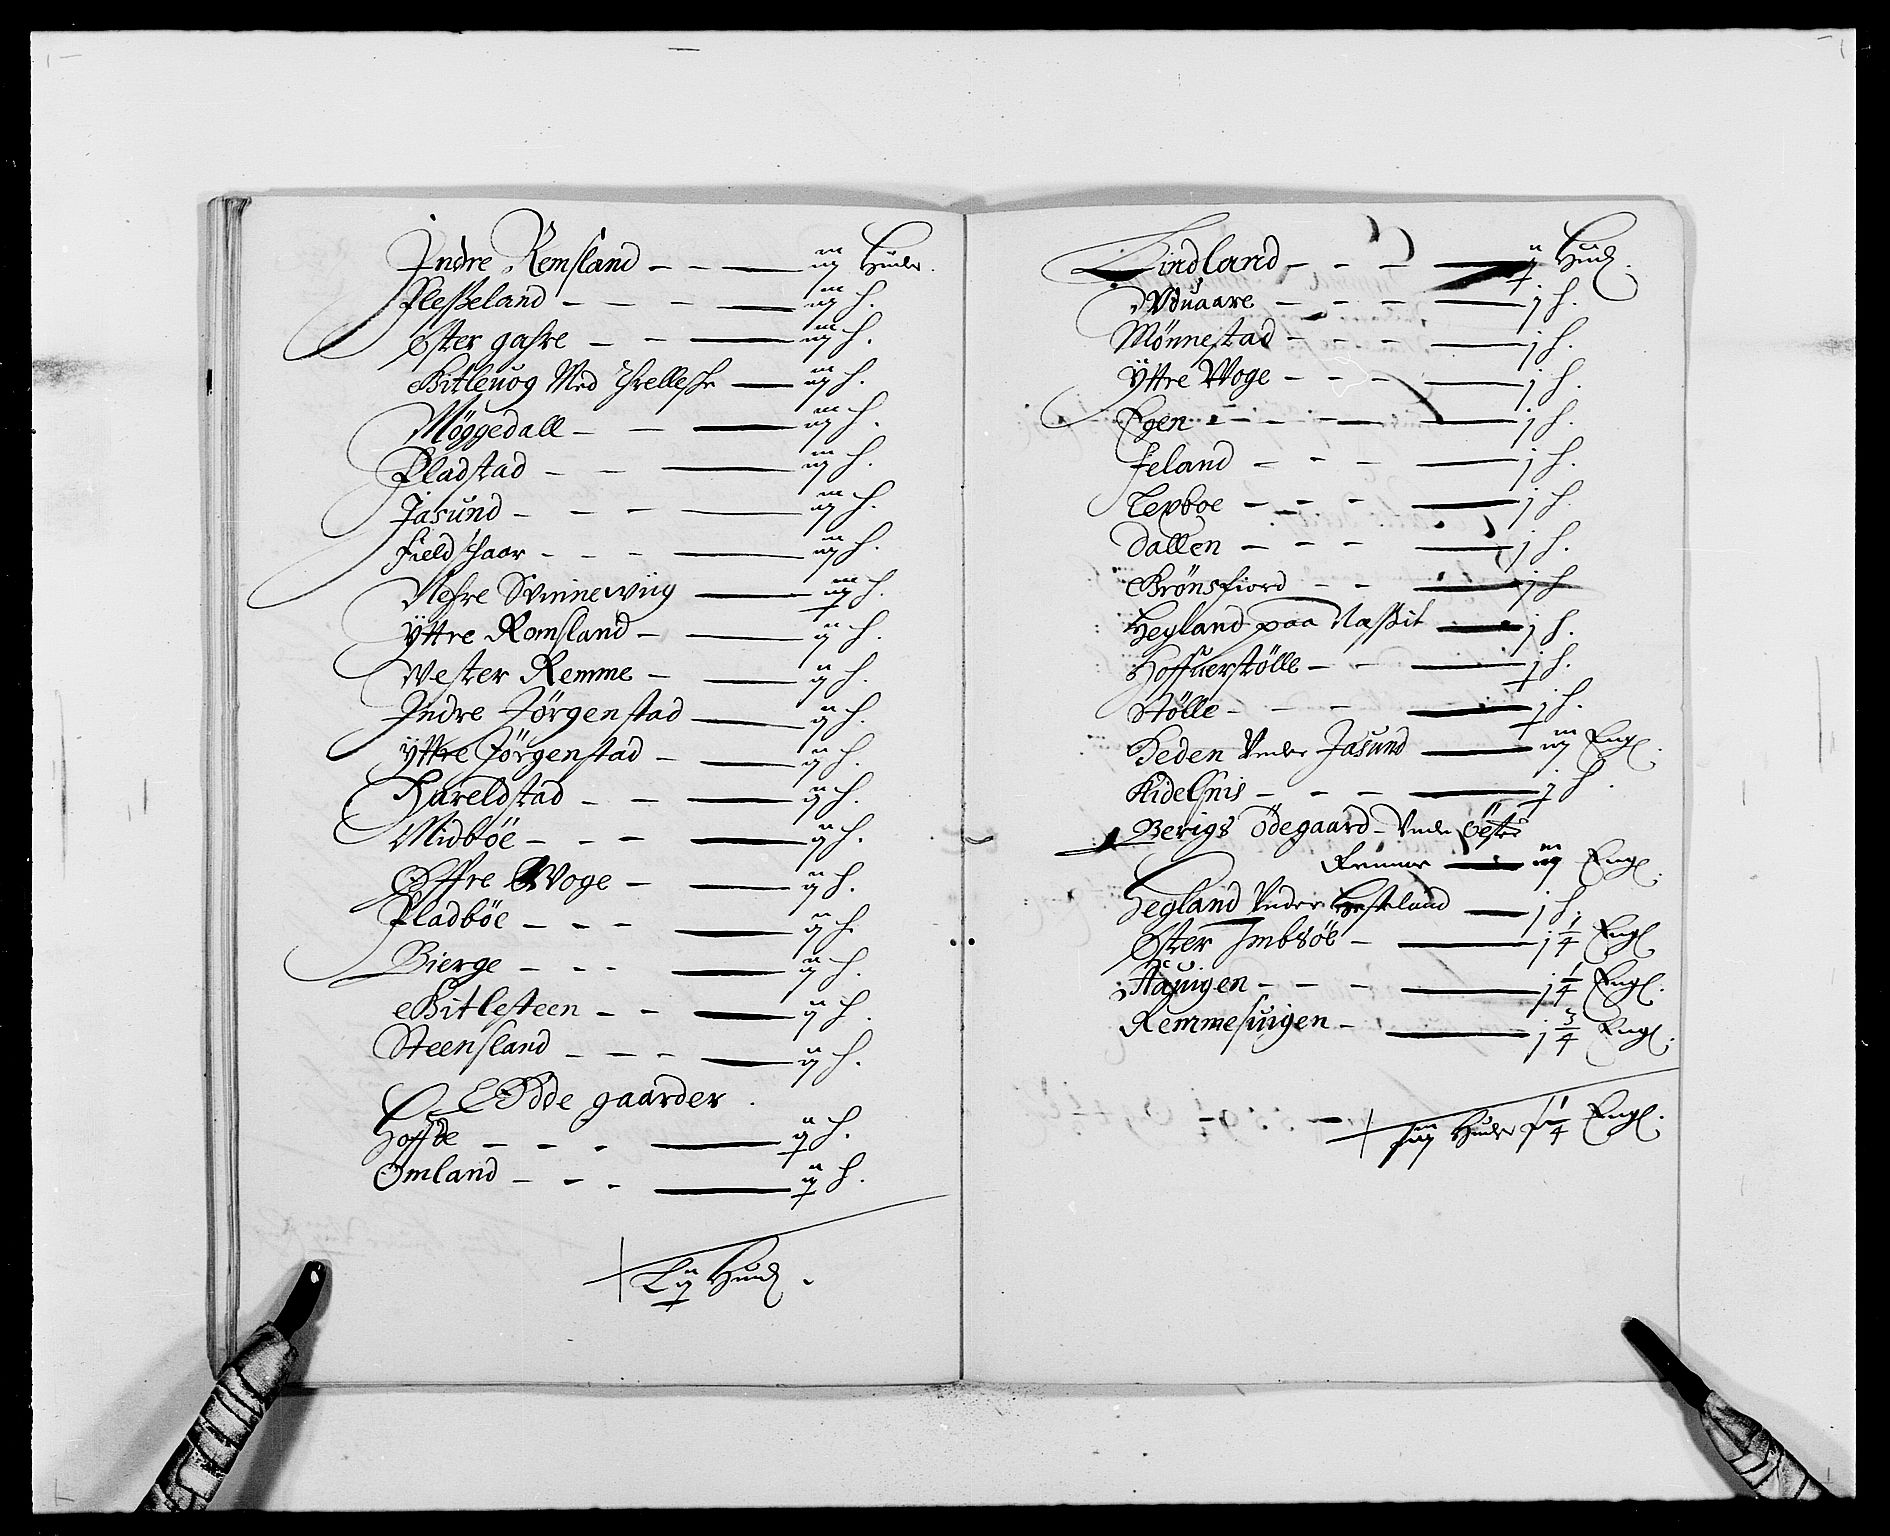 Indre Remsland - - — iij Huder.
Pleßeland - - - - — iij h.
Øster gahre - - — iij h.
Bitleuog Med Threllesse — iij h.
Møggedall - - — iij h.
Pladstad - - — iij h.
Jasund - - - — iij h.
Field Schaar - - - — iij h.
Nehre Svinneviig — iij h.
Yttre Romsland - — ij h.
Vester Remme - — ij h.
Indre Jörgenstad — ij h.
Yttre Jörgenstad - — ij h.
Hareldstad - - — ij h.
Midböe - - - — ij h.
Øffre Woge - — ij h.
Pladböe - - - — ij h.
Bierge - - - — ij h.
Bitlesteen - - — ij h.
Steensland - - - — ij h.
Ødde gaarder.
Hoffde - - - — ij h.
Omland - - - — ij h.
L ij Hud.
Lindland - - - — ij Hud.
Vduaare - - - - — j h.
Mönnestad - - - - — j h.
Yttre Woge - - - — j h.
Egen - - - - — j h.
Jeland - - - — j h.
Lexboe - - - — j h.
Dallen - - - — j h.
Brönsfiord - - — j h
Hegland paa Næßit — j h.
Hoffuerstölle - - — j h.
Stölle - - - — j h.
Heden Under Jasund — iij Engl.
Kidelsnis - - - — j h.
Berigs Ödegaard - Under Öester
Remme — iij Engl.
Hegland Under Hesteland — j h.
Öster Imbsöe - — j 1/4 Engl.
Hauigen - - - — j 1/4 Engl.
Remmesuigen - — j 3/4 Engl.
Huder 1/4 Engl.